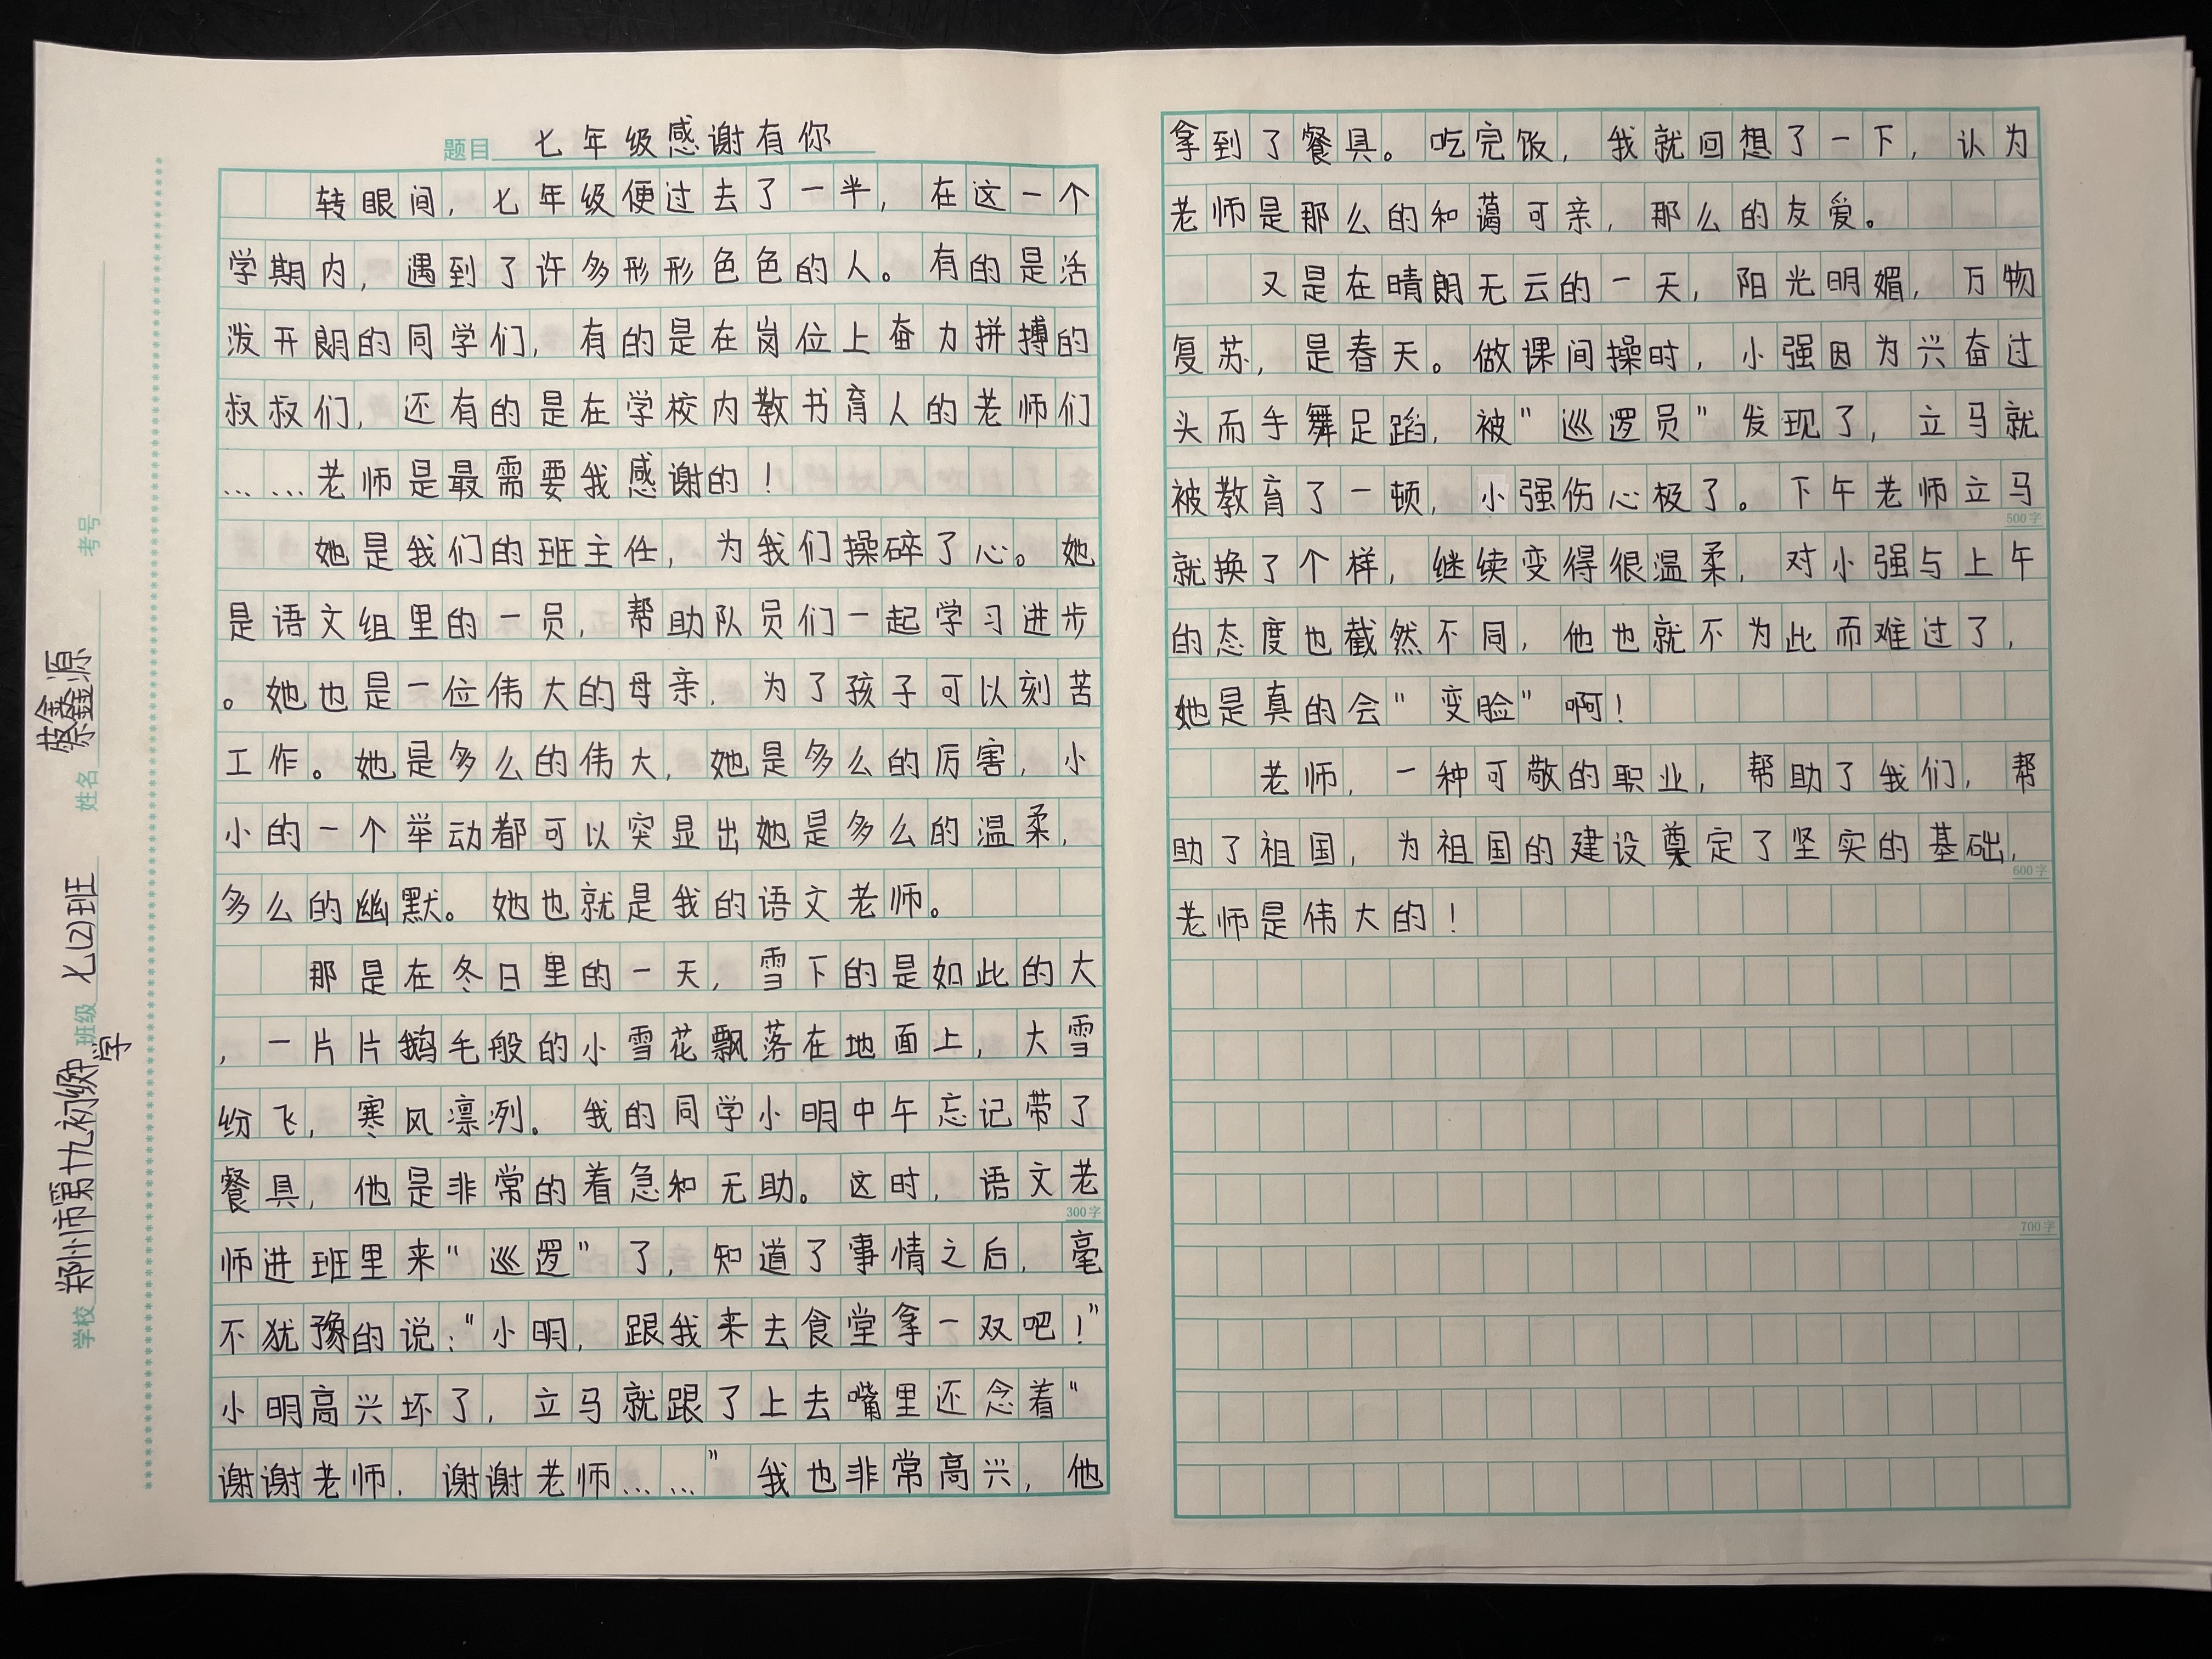 题目 七年级感谢有你
转眼间，七年级便过去了一半，在这一个
学期内，遇到了许多形形色色的人。有的是活
泼开朗的同学们，有的是在岗位上奋力拼搏的
叔叔们，还有的是在学校内教书育人的老师们
……老师是最需要我感谢的！
她是我们的班主任，为我们操碎了心。她
是语文组里的一员，帮助队员们一起学习进步
。她也是一位伟大的母亲，为了孩子可以刻苦
工作。她是多么的伟大，她是多么的厉害，小
小的一个举动都可以突显出她是多么的温柔，
多么的幽默。她也就是我的语文老师。
那是在冬日里的一天，雪下的是如此的大
，一片片鹅毛般的小雪花飘落在地面上，大雪
纷飞，寒风凛冽。我的同学小明中午忘记带了
餐具，他是非常的着急和无助。这时，语文老
300字
师进班里来“巡逻”了，知道了事情之后，毫
不犹豫的说：“小明，跟我来去食堂拿一双吧！”
小明高兴坏了，立马就跟了上去嘴里还念着“
谢谢老师，谢谢老师……”我也非常高兴，他
拿到了餐具。吃完饭，我就回想了一下，认为
老师是那么的和蔼可亲，那么的友爱。
又是在晴朗无云的一天，阳光明媚，万物
复苏，是春天。做课间操时，小强因为兴奋过
头而手舞足蹈，被“巡逻员”发现了，立马就
被教育了一顿，小强伤心极了。下午老师立马
500字
就换了个样，继续变得很温柔，对小强与上午
的态度也截然不同，他也就不为此而难过了，
她是真的会“变脸”啊！
老师，一种可敬的职业，帮助了我们，帮
助了祖国，为祖国的建设奠定了坚实的基础，
600字
老师是伟大的！
700字
学校 郑州市第十九初级中学 班级 七(2)班 姓名 蔡鑫源 考号